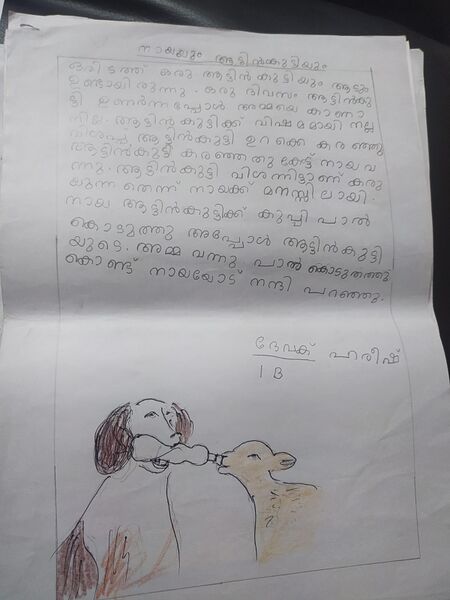 നായയും ആട്ടിൻകുട്ടിയും
ഒരിടത്ത് ഒരു ആട്ടിൻ കുട്ടിയും ആടും
ഉണ്ടായിരുന്നു. ഒരു ദിവസം ആട്ടിൻകു
ട്ടി ഉണർന്നപ്പോൾ അമ്മയെ കാണാ
നില്ല. ആട്ടിൻകുട്ടിക്ക് വിഷമമായി നല്ല
വിശപ്പ് ആട്ടിൻകുട്ടി ഉറക്കെ കരഞ്ഞു
ആട്ടിൻകുട്ടി കരഞ്ഞതു കേട്ട് നായ വ
ന്നു. ആട്ടിൻകുട്ടി വിശന്നിട്ടാണ് കര
യുന്നതെന്ന് നായക്ക് മനസ്സിലായി.
നായ ആട്ടിൻകുട്ടിക്ക് കുപ്പി പാൽ
കൊടുത്തു അപ്പോൾ ആട്ടിൻകുട്ടി
യുടെ. അമ്മ വന്നു. പാൽ കൊടുത്തതു
കൊണ്ട് നായയോട് നന്ദി പറഞ്ഞു.
ദേവക് ഹരീഷ്
1 B